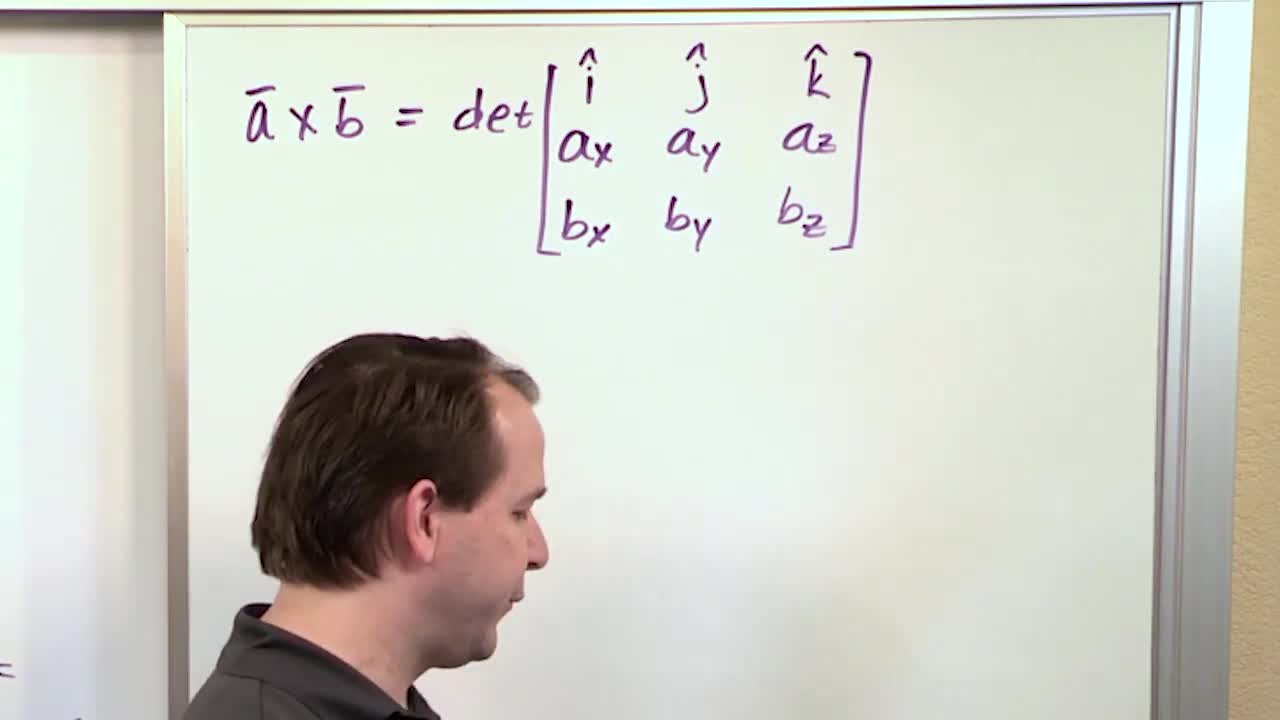 a̅ x b̅ = det [ î ĵ k̂
ax ay az
bx by bz ]